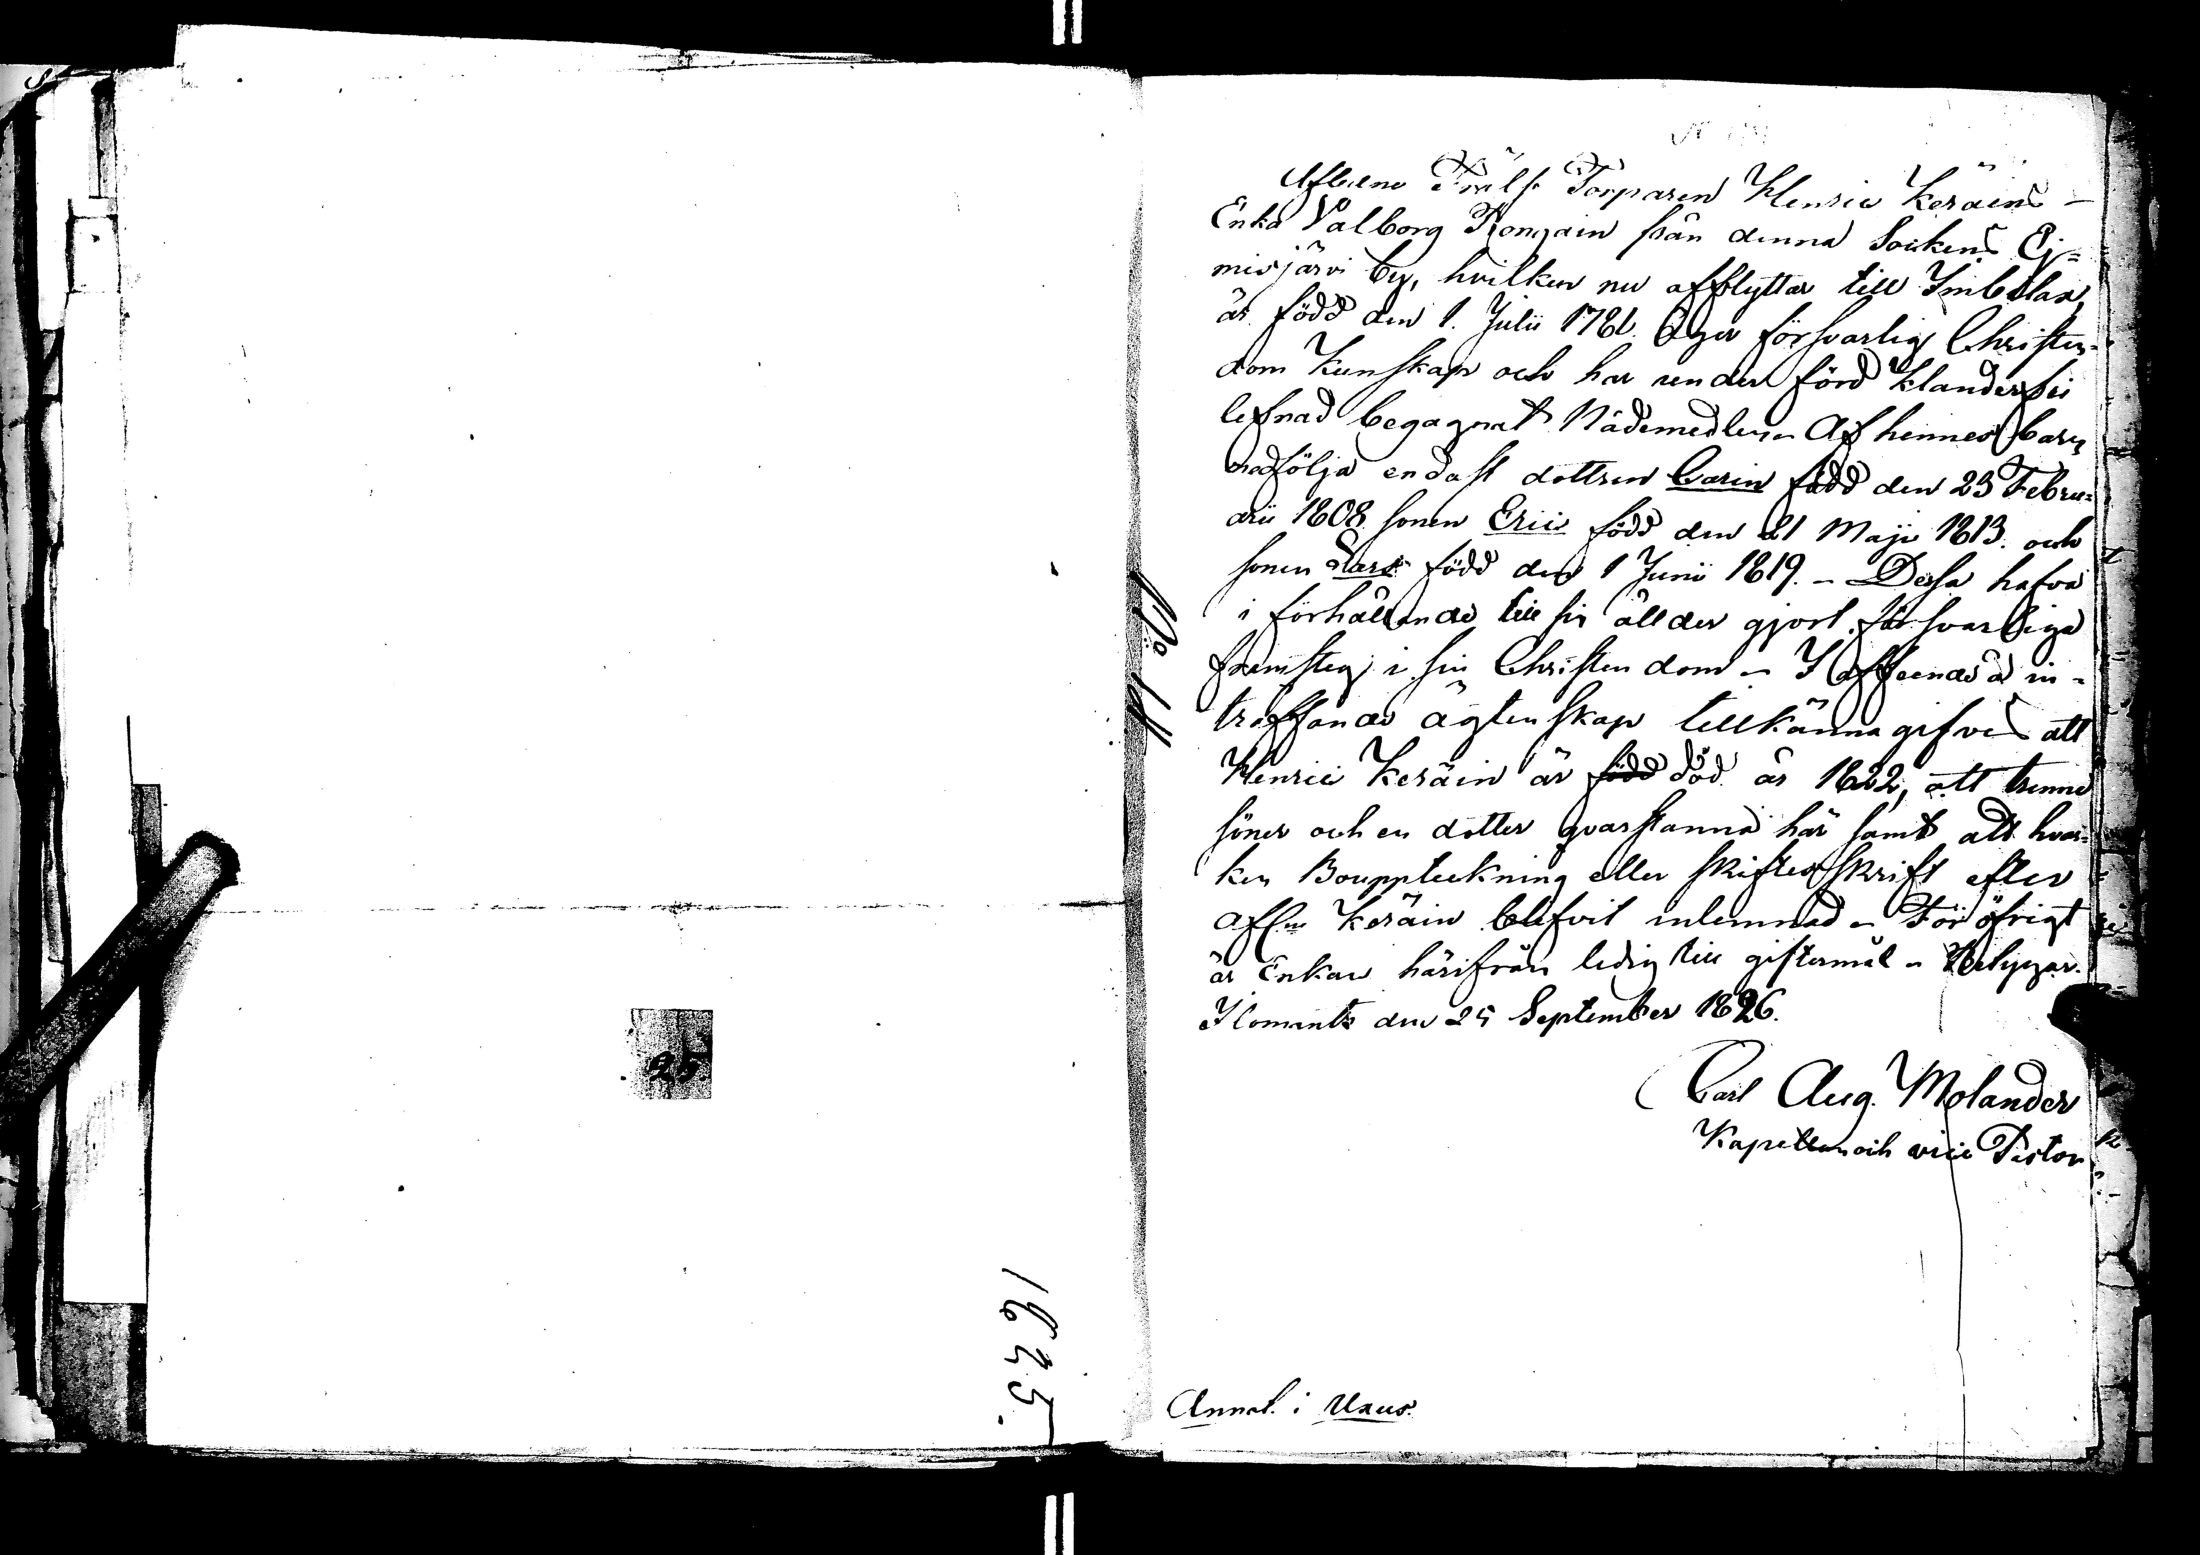 Aflidne Frälse Torparen Henric Keräins
Enka Valborg Rongain från denna Sockens Ej=
misjärvi by, hvilken nu afflyttar till Imbilax,
är född den 1. Julii 1781. Äger försvarlig Christen-
dom Kunskap och har under förd klanderfri
lefnad begagnat Nådemedlen. Af hennes barn
medfölja endast dottren Carin född den 23 Febru=
arii 1808. sonen Eric född den 21 Maji 1813. och
sonen Lars född den 1 Junii 1819. – Dessa hafva
i förhållande till sin ållder gjort försvarliga
framsteg i sin Christendom – I afseende å in-
träffande ägtenskap tillkännagifves att
Henric Keräin är född död år 1822, att trenne
söner och en dotter qvarstanna här samt att hvar-
ken Bouppteckning eller skiftesskrift efter
Afl:ne Keräin blifvit inlemnad – För öfrigt
är Enkan härifrån ledig till giftermål –
Ilomants den 25 September 1826.
Carl Aug. Molander
Kapellan och vice Pastor
Annot. i Uxus.
No 14
25.
1825.